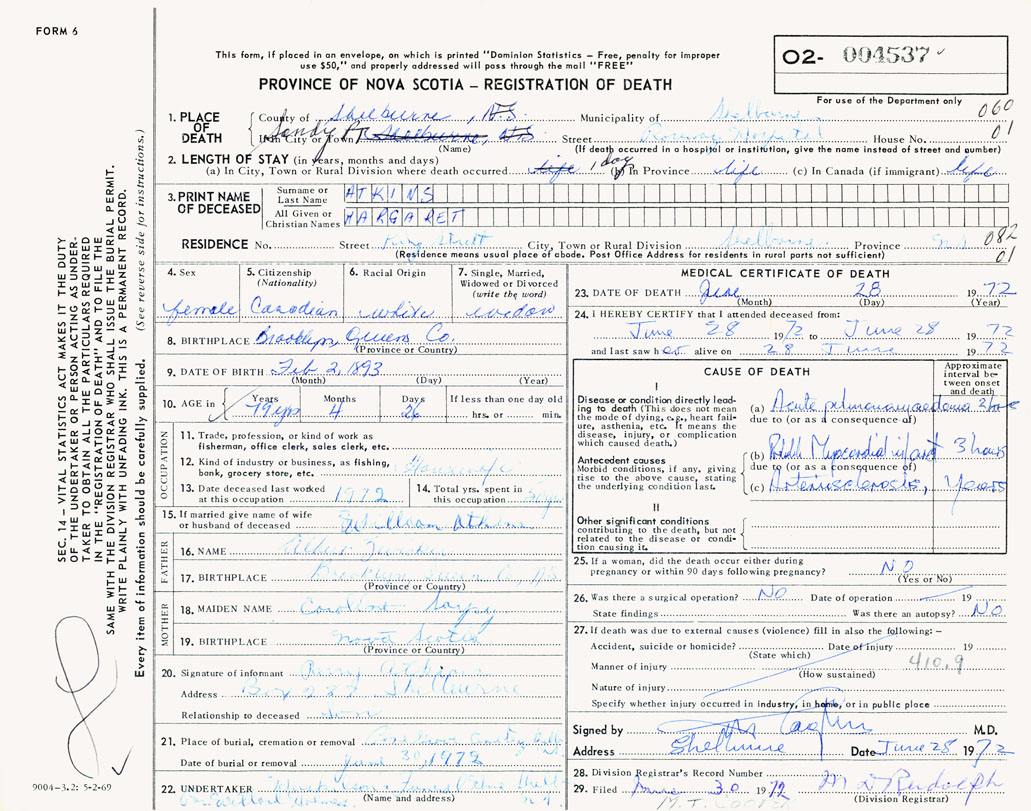 FORM 6
This form, if placed in an envelope, on which is printed "Dominion Statistics – Free, penalty for improper
use $50," and properly addressed will pass through the mail "FREE"
PROVINCE OF NOVA SCOTIA – REGISTRATION OF DEATH
O2- 004537
For use of the Department only
060
01
1. PLACE OF DEATH
County of Shelburne, N.S. Municipality of Shelburne
If in City or Town Sandy Pt. Shelburne, N.S. Street Roseway Hospital House No.
(Name) (If death occurred in a hospital or institution, give the name instead of street and number)
2. LENGTH OF STAY (in years, months and days)
(a) In City, Town or Rural Division where death occurred life 1 day (b) In Province life (c) In Canada (if immigrant) life
3. PRINT NAME OF DECEASED
Surname or Last Name ATKINS
All Given or Christian Names MARGARET
RESIDENCE No. Street King Street City, Town or Rural Division Shelburne Province N.S. 082
01
(Residence means usual place of abode. Post Office Address for residents in rural parts not sufficient)
4. Sex female
5. Citizenship (Nationality) Canadian
6. Racial Origin white
7. Single, Married, Widowed or Divorced (write the word) widow
8. BIRTHPLACE Brooklyn, Queens Co.
(Province or Country)
9. DATE OF BIRTH Feb 2, 1893
(Month) (Day) (Year)
10. AGE in Years 79 yrs Months 4 Days 26 If less than one day old hrs. or min.
OCCUPATION
11. Trade, profession, or kind of work as fisherman, office clerk, sales clerk, etc.
12. Kind of industry or business, as fishing, bank, grocery store, etc. Housewife
13. Date deceased last worked at this occupation 1972
14. Total yrs. spent in this occupation
15. If married give name of wife or husband of deceased William Atkins
FATHER
16. NAME
17. BIRTHPLACE Brooklyn Queens Co, N.S.
(Province or Country)
MOTHER
18. MAIDEN NAME Caroline
19. BIRTHPLACE Nova Scotia
(Province or Country)
20. Signature of informant Atkins
Address Box 282 Shelburne
Relationship to deceased son
21. Place of burial, cremation or removal
Date of burial or removal June 30, 1972
22. UNDERTAKER Funeral Home
(Name and address)
MEDICAL CERTIFICATE OF DEATH
23. DATE OF DEATH June 28 1972
(Month) (Day) (Year)
24. I HEREBY CERTIFY that I attended deceased from:
June 28 1972 to June 28 1972
and last saw her alive on 28 June 1972
CAUSE OF DEATH
Approximate interval between onset and death
I
Disease or condition directly leading to death (This does not mean the mode of dying, e.g., heart failure, asthenia, etc. It means the disease, injury, or complication which caused death.)
(a) Acute pulmonary oedema
due to (or as a consequence of)
Antecedent causes
Morbid conditions, if any, giving rise to the above cause, stating the underlying condition last.
(b) Myocardial infarct 3 hours
due to (or as a consequence of)
(c) Arteriosclerosis, Years
II
Other significant conditions
contributing to the death, but not related to the disease or condition causing it.
25. If a woman, did the death occur either during pregnancy or within 90 days following pregnancy? NO
(Yes or No)
26. Was there a surgical operation? NO Date of operation 19
State findings Was there an autopsy? NO
27. If death was due to external causes (violence) fill in also the following: –
Accident, suicide or homicide? Date of injury 19
(State which)
Manner of injury 410.9
(How sustained)
Nature of injury
Specify whether injury occurred in industry, in home, or in public place
Signed by M.D.
Address Shelburne Date June 28 1972
28. Division Registrar's Record Number
29. Filed June 30 1972 M D Rudolph
(Division Registrar)
SEC. 14 – VITAL STATISTICS ACT MAKES IT THE DUTY
OF THE UNDERTAKER OR PERSON ACTING AS UNDER-
TAKER TO OBTAIN ALL THE PARTICULARS REQUIRED
IN THE "REGISTRATION OF DEATH" AND TO FILE THE
SAME WITH THE DIVISION REGISTRAR WHO SHALL ISSUE THE BURIAL PERMIT.
WRITE PLAINLY WITH UNFADING INK. THIS IS A PERMANENT RECORD.
Every item of information should be carefully supplied. (See reverse side for instructions.)
9004-3.2: 5-2-69